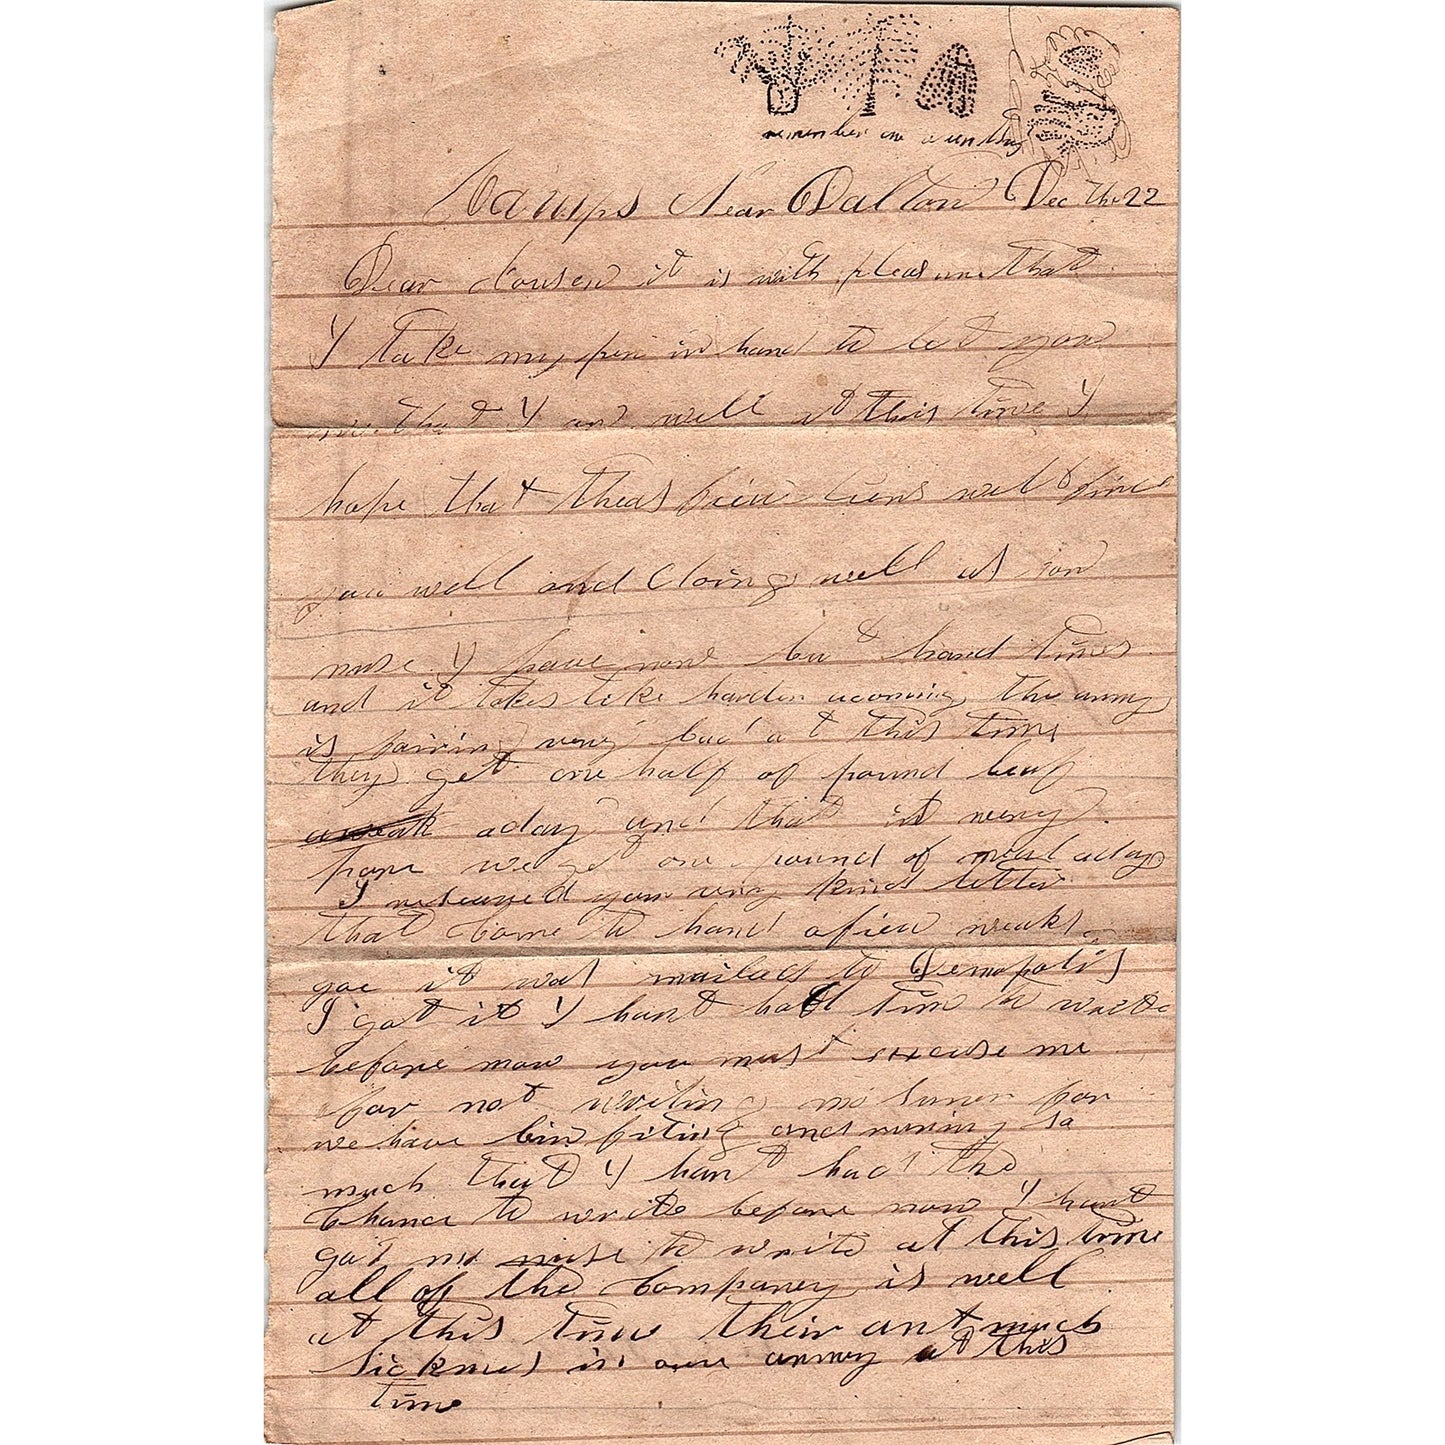 remember me
Camps Near Dalton Dec the 22
Dear Cousen it is with pleasure that
I take my pen in hand to let you
no that I am well at this time I
hope that theas few lions will find
you well and doing well as for
nuse I have non but hard times
and it lokes like harder acoming the army
is fairing very bad at this time
they get one half of pound beaf
aweak aday and that is very
pore we get one pound of meal aday
I reseaved your very kind letter
that Come to hand a few weaks
goe it was mailed to Demopolis
I got it I hant had time to write
before now you must excuse me
for not writing no suner for
we have bin fiting and runing so
much that I hant had the
Chance to write before now I hant
got no nuse to write at this time
all of the Companey is well
at this time their ant much
Sickness in our army at this
time